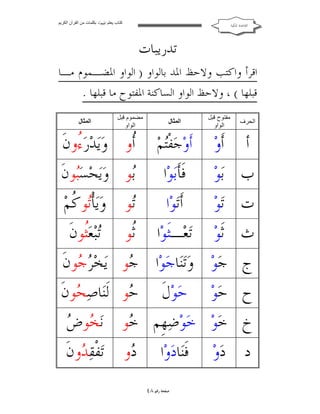 كتاب يعلم تهجيات بكلمات من القرآن الكريم
تدريبات
اقرأ واكتب ولاحظ المد بالواو ( الواو المضموم ما
قبلها ) ، ولاحظ الواو الساكنة المفتوح ما قبلها .
الحرف مفتوح قبل الواو المثال مضموم قبل الواو المثال
أ أَوْ أَوْ جَفْتُمْ أُو وَيَدْرَءُونَ
ب بَوْ فَأَبَوْا بُو وَيَحْسَبُونَ
ت تَوْ أَتَوْا تُو وَيَأْتُوكُمْ
ث ثَوْ تَعْثَوْا ثُو تُبْعَثُونَ
ج جَوْ وَتَنَاجَوْا جُو يَخْرُجُونَ
ح حَوْ حَوْلَ حُو لَنَاصِحُونَ
خ خَوْ خَوْضِهِم خُو نَخُوضُ
د دَوْ فَنَادَوْا دُو تَفْقِدُونَ